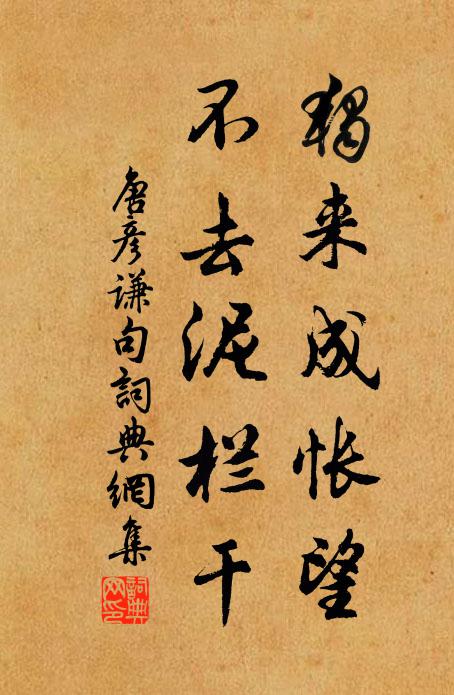 獨来成怅望
不去泥栏干
唐彦谦句詞典網集
詞典
网印